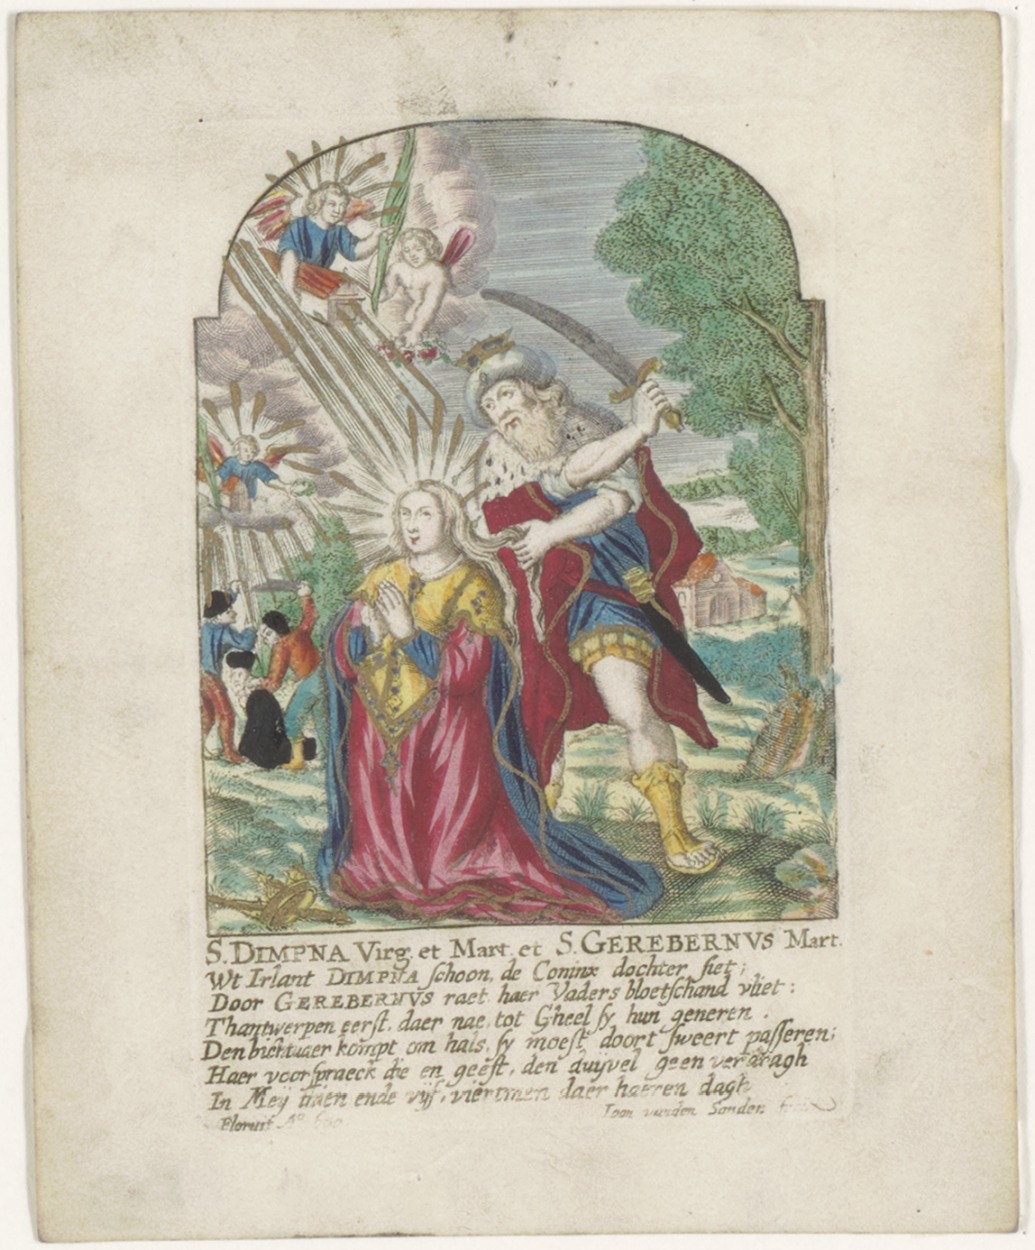 S. DIMPNA Virg. et Mart. et S. GEREBERNVS Mart.
Wt Irlant DIMPNA schoon, de Coninx dochter siet;
Door GEREBERNVS raet haer Vaders bloetschand vliet:
Thantwerpen eerst, daer nae, tot Gheel sy hun generen.
Den kompt om hals, sy moest doort sweert passeren;
Haer voorspraeck die en geest, den duijvel geen verdragh
In Meij thien ende vijf, viertmen daer haeren dagh
Floruit Aº 600
Ioan vanden Sanden